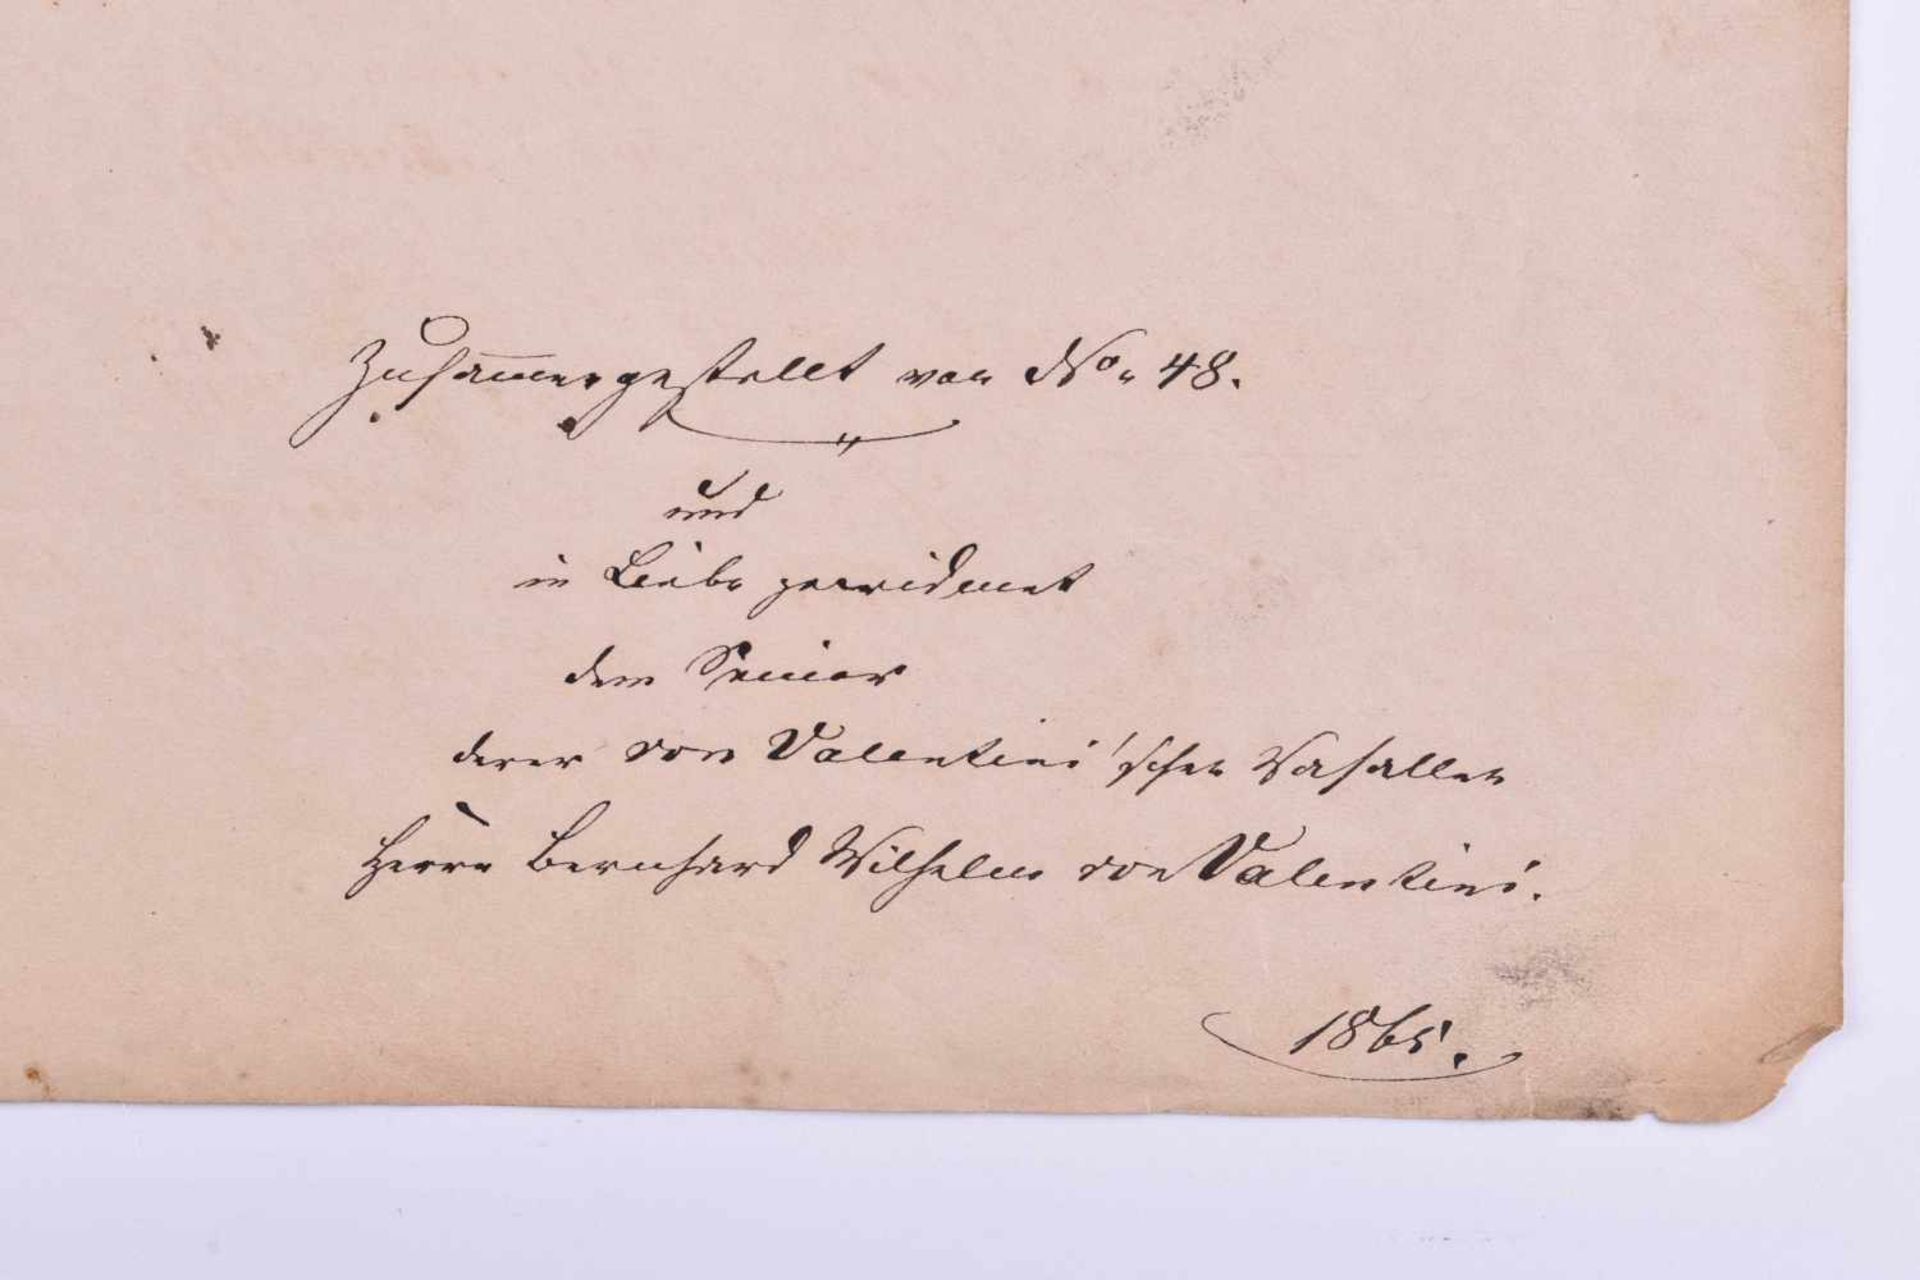 Zusam̅engestellt von No. 48.
und
in Liebe gewidmet
dem Senior
derer von Valentini'schen Vasallen
Herrn Bernhard Wilhelm von Valentini.
1865.